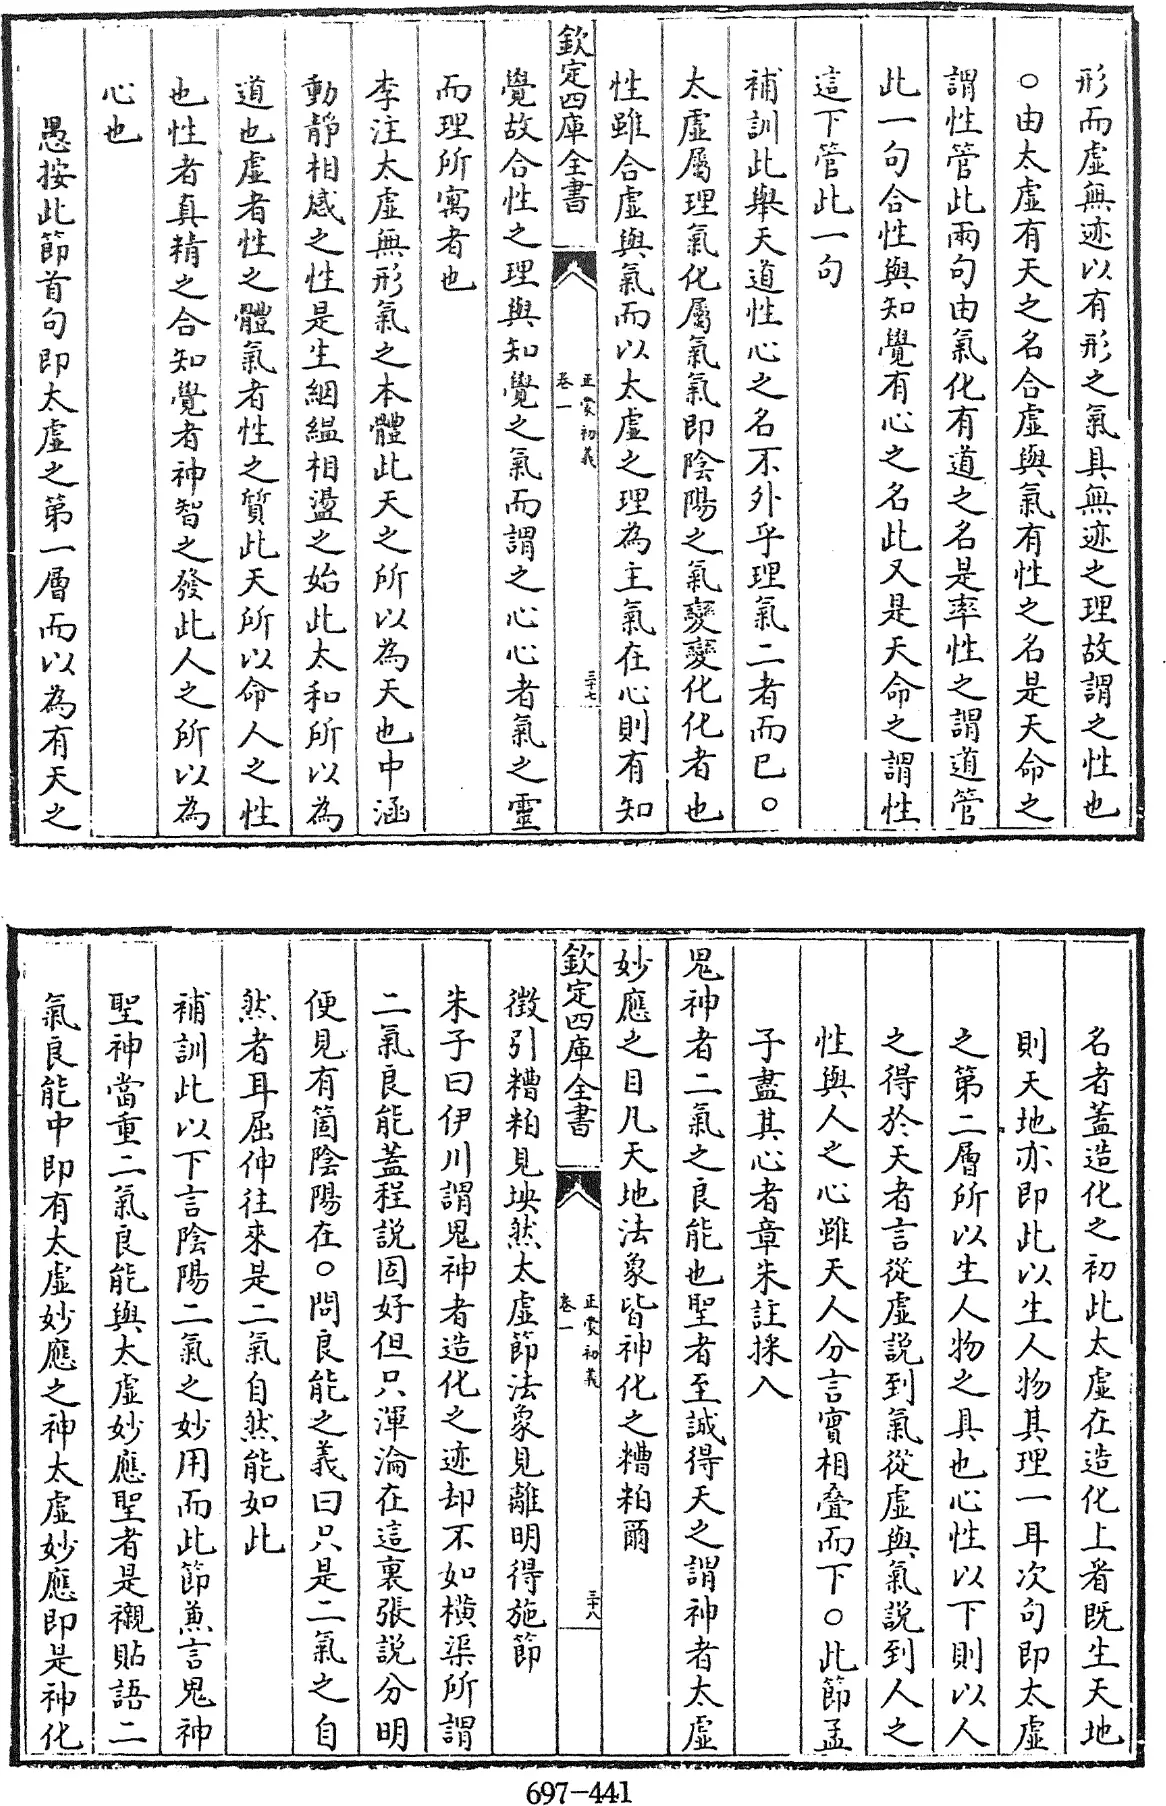 形而虛無迹以有形之氣具無迹之理故謂之性也
○由太虛有天之名合虛與氣有性之名是天命之
謂性管此兩句由氣化有道之名是率性之謂道管
此一句合性與知覺有心之名此又是天命之謂性
這下管此一句
補訓此舉天道性心之名不外乎理氣二者而已○
太虛屬理氣化屬氣氣即陰陽之氣變變化化者也
性雖合虛與氣而以太虛之理為主氣在心則有知
欽定四庫全書
正蒙初義
卷一
三十七
覺故合性之理與知覺之氣而謂之心心者氣之靈
而理所寓者也
李注太虛無形氣之本體此天之所以為天也中涵
動靜相感之性是生絪縕相盪之始此太和所以為
道也虛者性之體氣者性之質此天所以命人之性
也性者真精之合知覺者神智之發此人之所以為
心也
愚按此節首句即太虛之第一層而以為有天之
名者蓋造化之初此太虛在造化上看既生天地
則天地亦即此以生人物其理一耳次句即太虛
之第二層所以生人物之具也心性以下則以人
之得於天者言從虛說到氣從虛與氣說到人之
性與人之心雖天人分言實相疊而下○此節孟
子盡其心者章朱註採入
鬼神者二氣之良能也聖者至誠得天之謂神者太虛
妙應之目凡天地法象皆神化之糟粕爾
欽定四庫全書
正蒙初義
卷一
三十八
徵引糟粕見坱然太虛節法象見離明得施節
朱子曰伊川謂鬼神者造化之迹却不如橫渠所謂
二氣良能蓋程說固好但只渾淪在這裏張說分明
便見有箇陰陽在○問良能之義曰只是二氣之自
然者耳屈伸往來是二氣自然能如此
補訓此以下言陰陽二氣之妙用而此節兼言鬼神
聖神當重二氣良能與太虛妙應聖者是襯貼語二
氣良能中即有太虛妙應之神太虛妙應即是神化
697-441